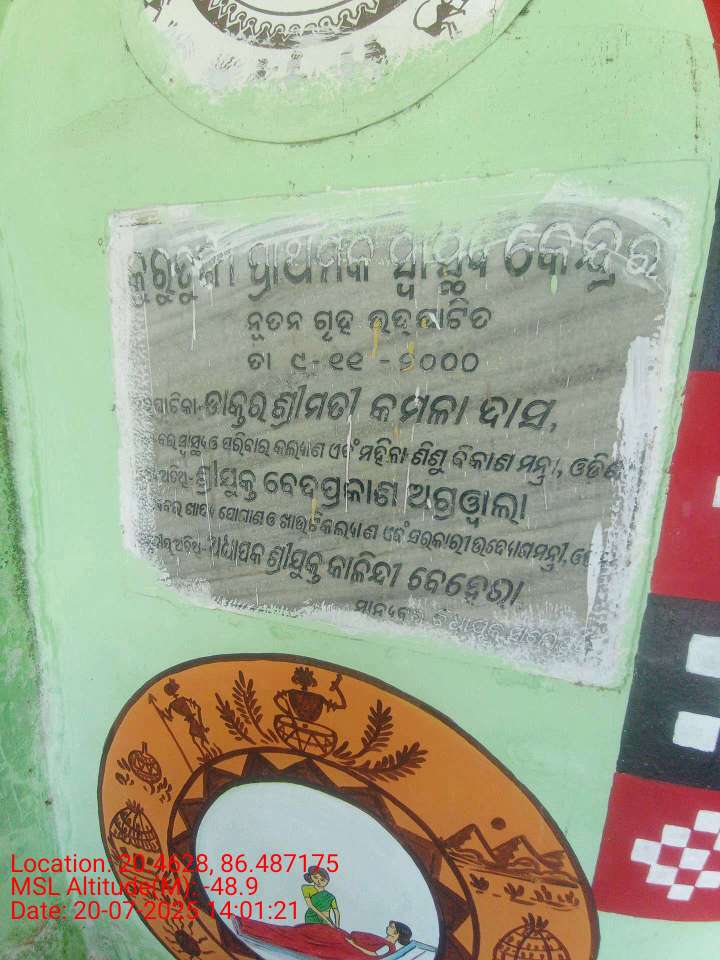 ପ୍ରାଥମିକ ସ୍ୱାସ୍ଥ୍ୟ କେନ୍ଦ୍ରର
ନୂତନ ଗୃହ ଉଦ୍‌ଘାଟିତ
ତା ୯-୧୧-୨୦୦୦
ଡାକ୍ତର ଶ୍ରୀମତୀ କମଳା ଦାସ,
ସ୍ୱାସ୍ଥ୍ୟ ଓ ପରିବାର କଲ୍ୟାଣ ଏବଂ ମହିଳା ଶିଶୁ ବିକାଶ ମନ୍ତ୍ରୀ,
ଅତିଥି-ଶ୍ରୀଯୁକ୍ତ ବେଦପ୍ରକାଶ ଅଗ୍ରୱାଲା
ଖାଦ୍ୟ ଯୋଗାଣ ଓ ଖାଉଟି କଲ୍ୟାଣ ଏବଂ ସରକାରୀ ଉଦ୍ୟୋଗ ମନ୍ତ୍ରୀ,
ଅତିଥି-ଅଧ୍ୟାପକ ଶ୍ରୀଯୁକ୍ତ କାଳିନ୍ଦୀ ବେହେରା
ମାନ୍ୟବର
Location: 20.4628, 86.487175
MSL Altitude(M): -48.9
Date: 20-07-2025 14:01:21